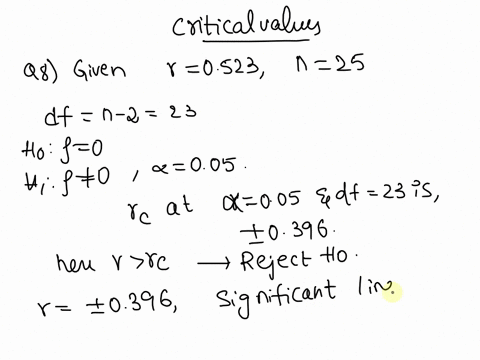 Critical values
Q8) Given r=0.523, n=25
df = n-2 = 23
H₀: ρ=0
H₁: ρ≠0, α=0.05.
r_c at α=0.05 & df=23 is,
±0.396.
here r>r_c → Reject H₀.
r= ±0.396, Significant lin